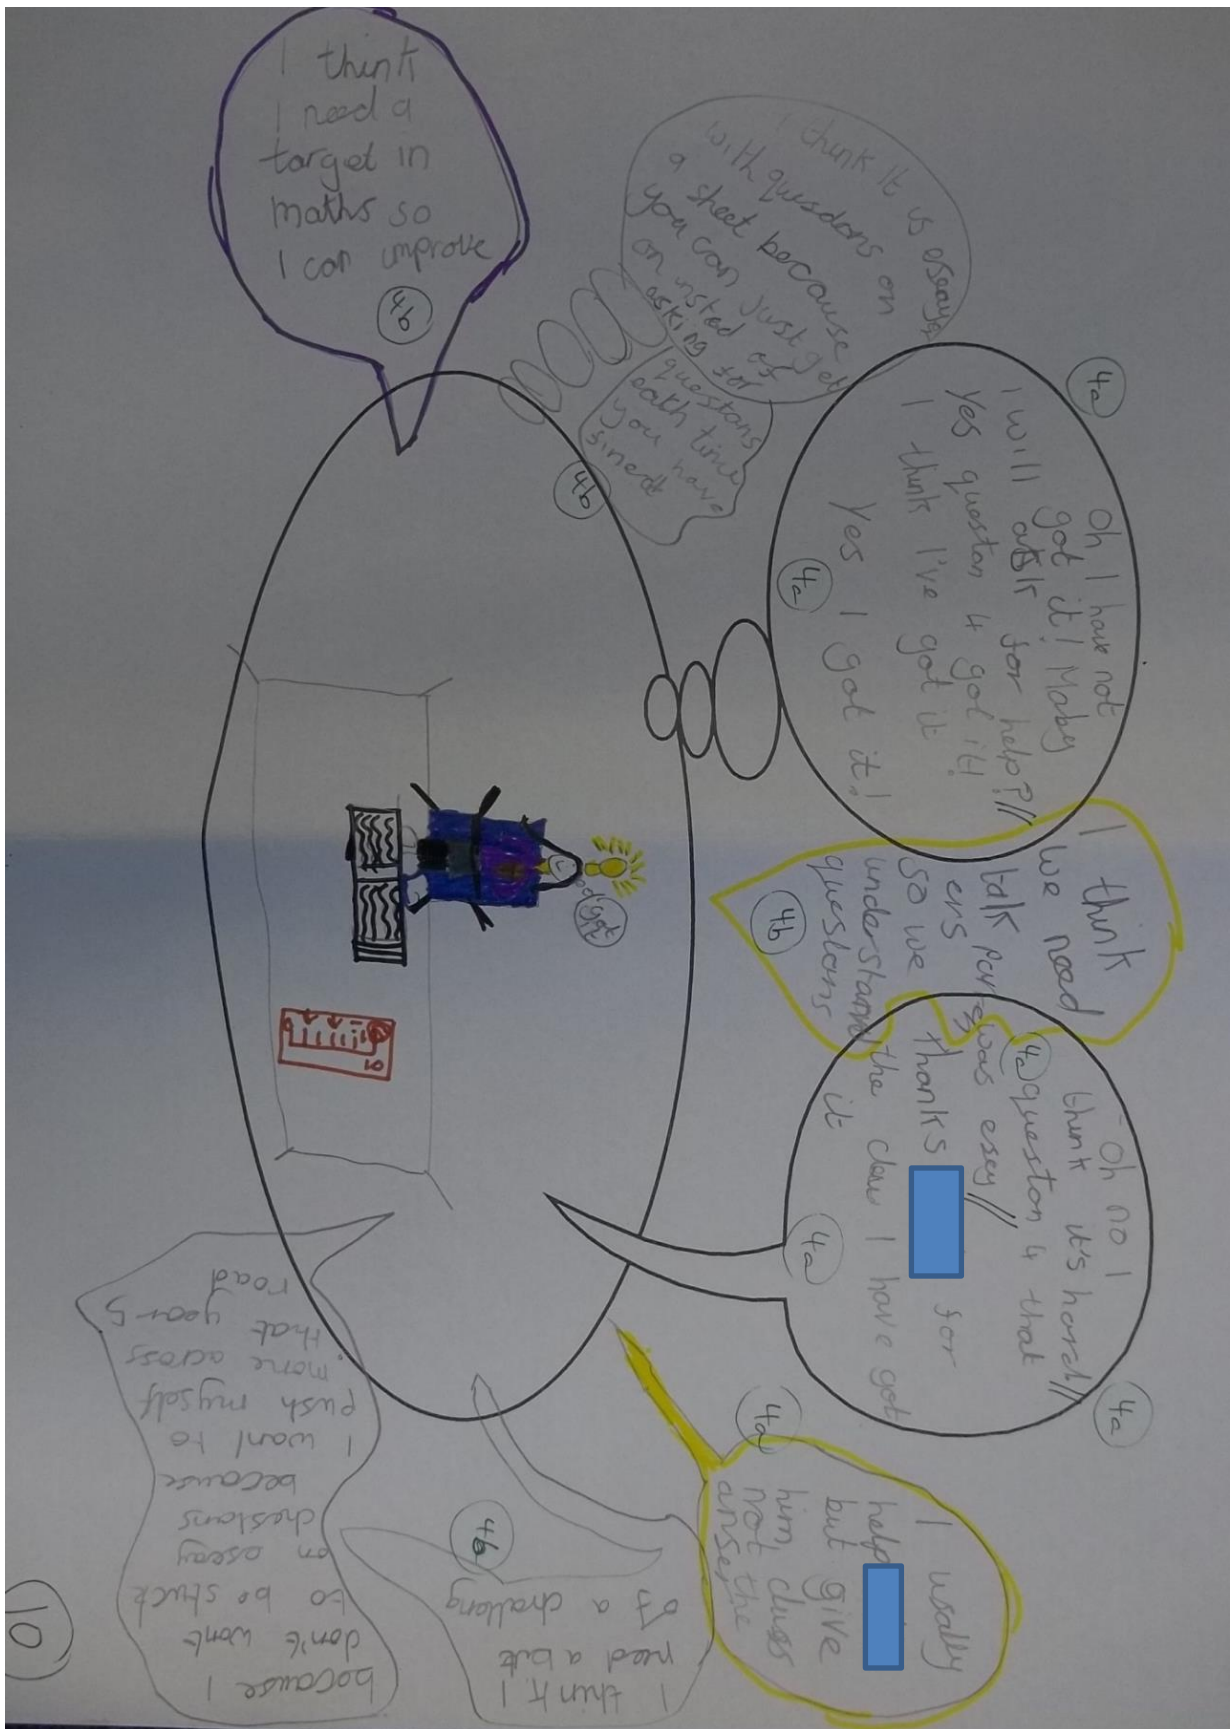 I think
I need a
target in
maths so
I can improve
4b
I think it is eseayer
with quesdons on
a sheet because
you can just get
on insted of
asking for
questons
eath time
you have
sined
4b
4a
Oh I have not
got it! Maby
I will ask for help?//
Yes queston 4 got it!!
I think I've got it
4a
Yes I got it!
I think
we need
talk partn
ers
so we
understand
questions
4b
Oh no I
think it's hard//
4a
queston 4 that
was esey//
thanks for
the clew I have got
it
4a
4a
I usally
help
but give
him clues
not the
anser
4a
got
it
I think I
need a bit
of a challeng
4b
because I
don't want
to be stuck
on eseay
chestons
because
I want to
push myself
more across
that year 5
road
10